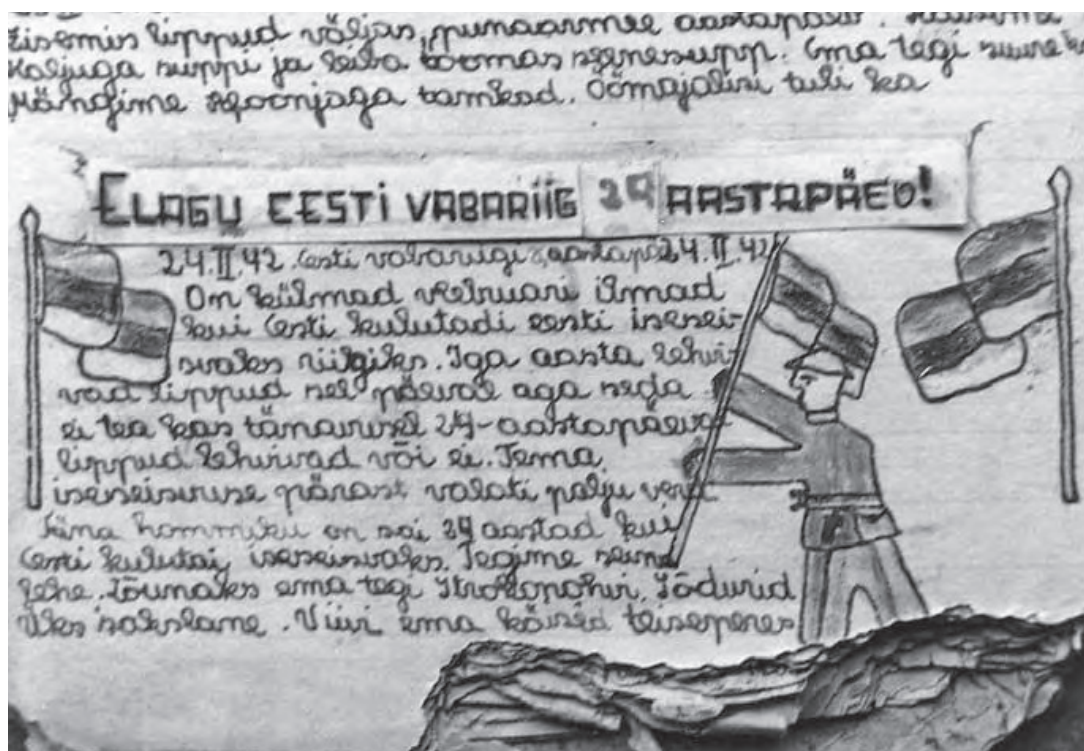 lippud väljas, punaarmee aastapäev.
Kaljuga suppi ja leiba toomas seenesupp. Ema tegi suure
Mängime Spoonjaga tamkad. Öömajalisi tuli ka
ELAGU EESTI VABARIIG 24 AASTAPÄEV!
24.II.42. Eesti vabariigi aastapäe 24.II.42
On külmad veebruari ilmad
kui Eesti kulutadi eesti isesei-
svaks riigiks. Iga aasta lehvi-
vad lippud sel päeval aga seda
ei tea kas tänavusel 24-aastapäeva
lippud lehvivad või ei. Tema
iseseisvuse pärast valati palju verd
Täna hommiku on sai 24 aastad kui
Eesti kulutaj iseseisvaks. Tegime seina
lehe. Lõunaks ema tegi Sõdurid
Üks sakslane. Viivi ema käisid teiseperes